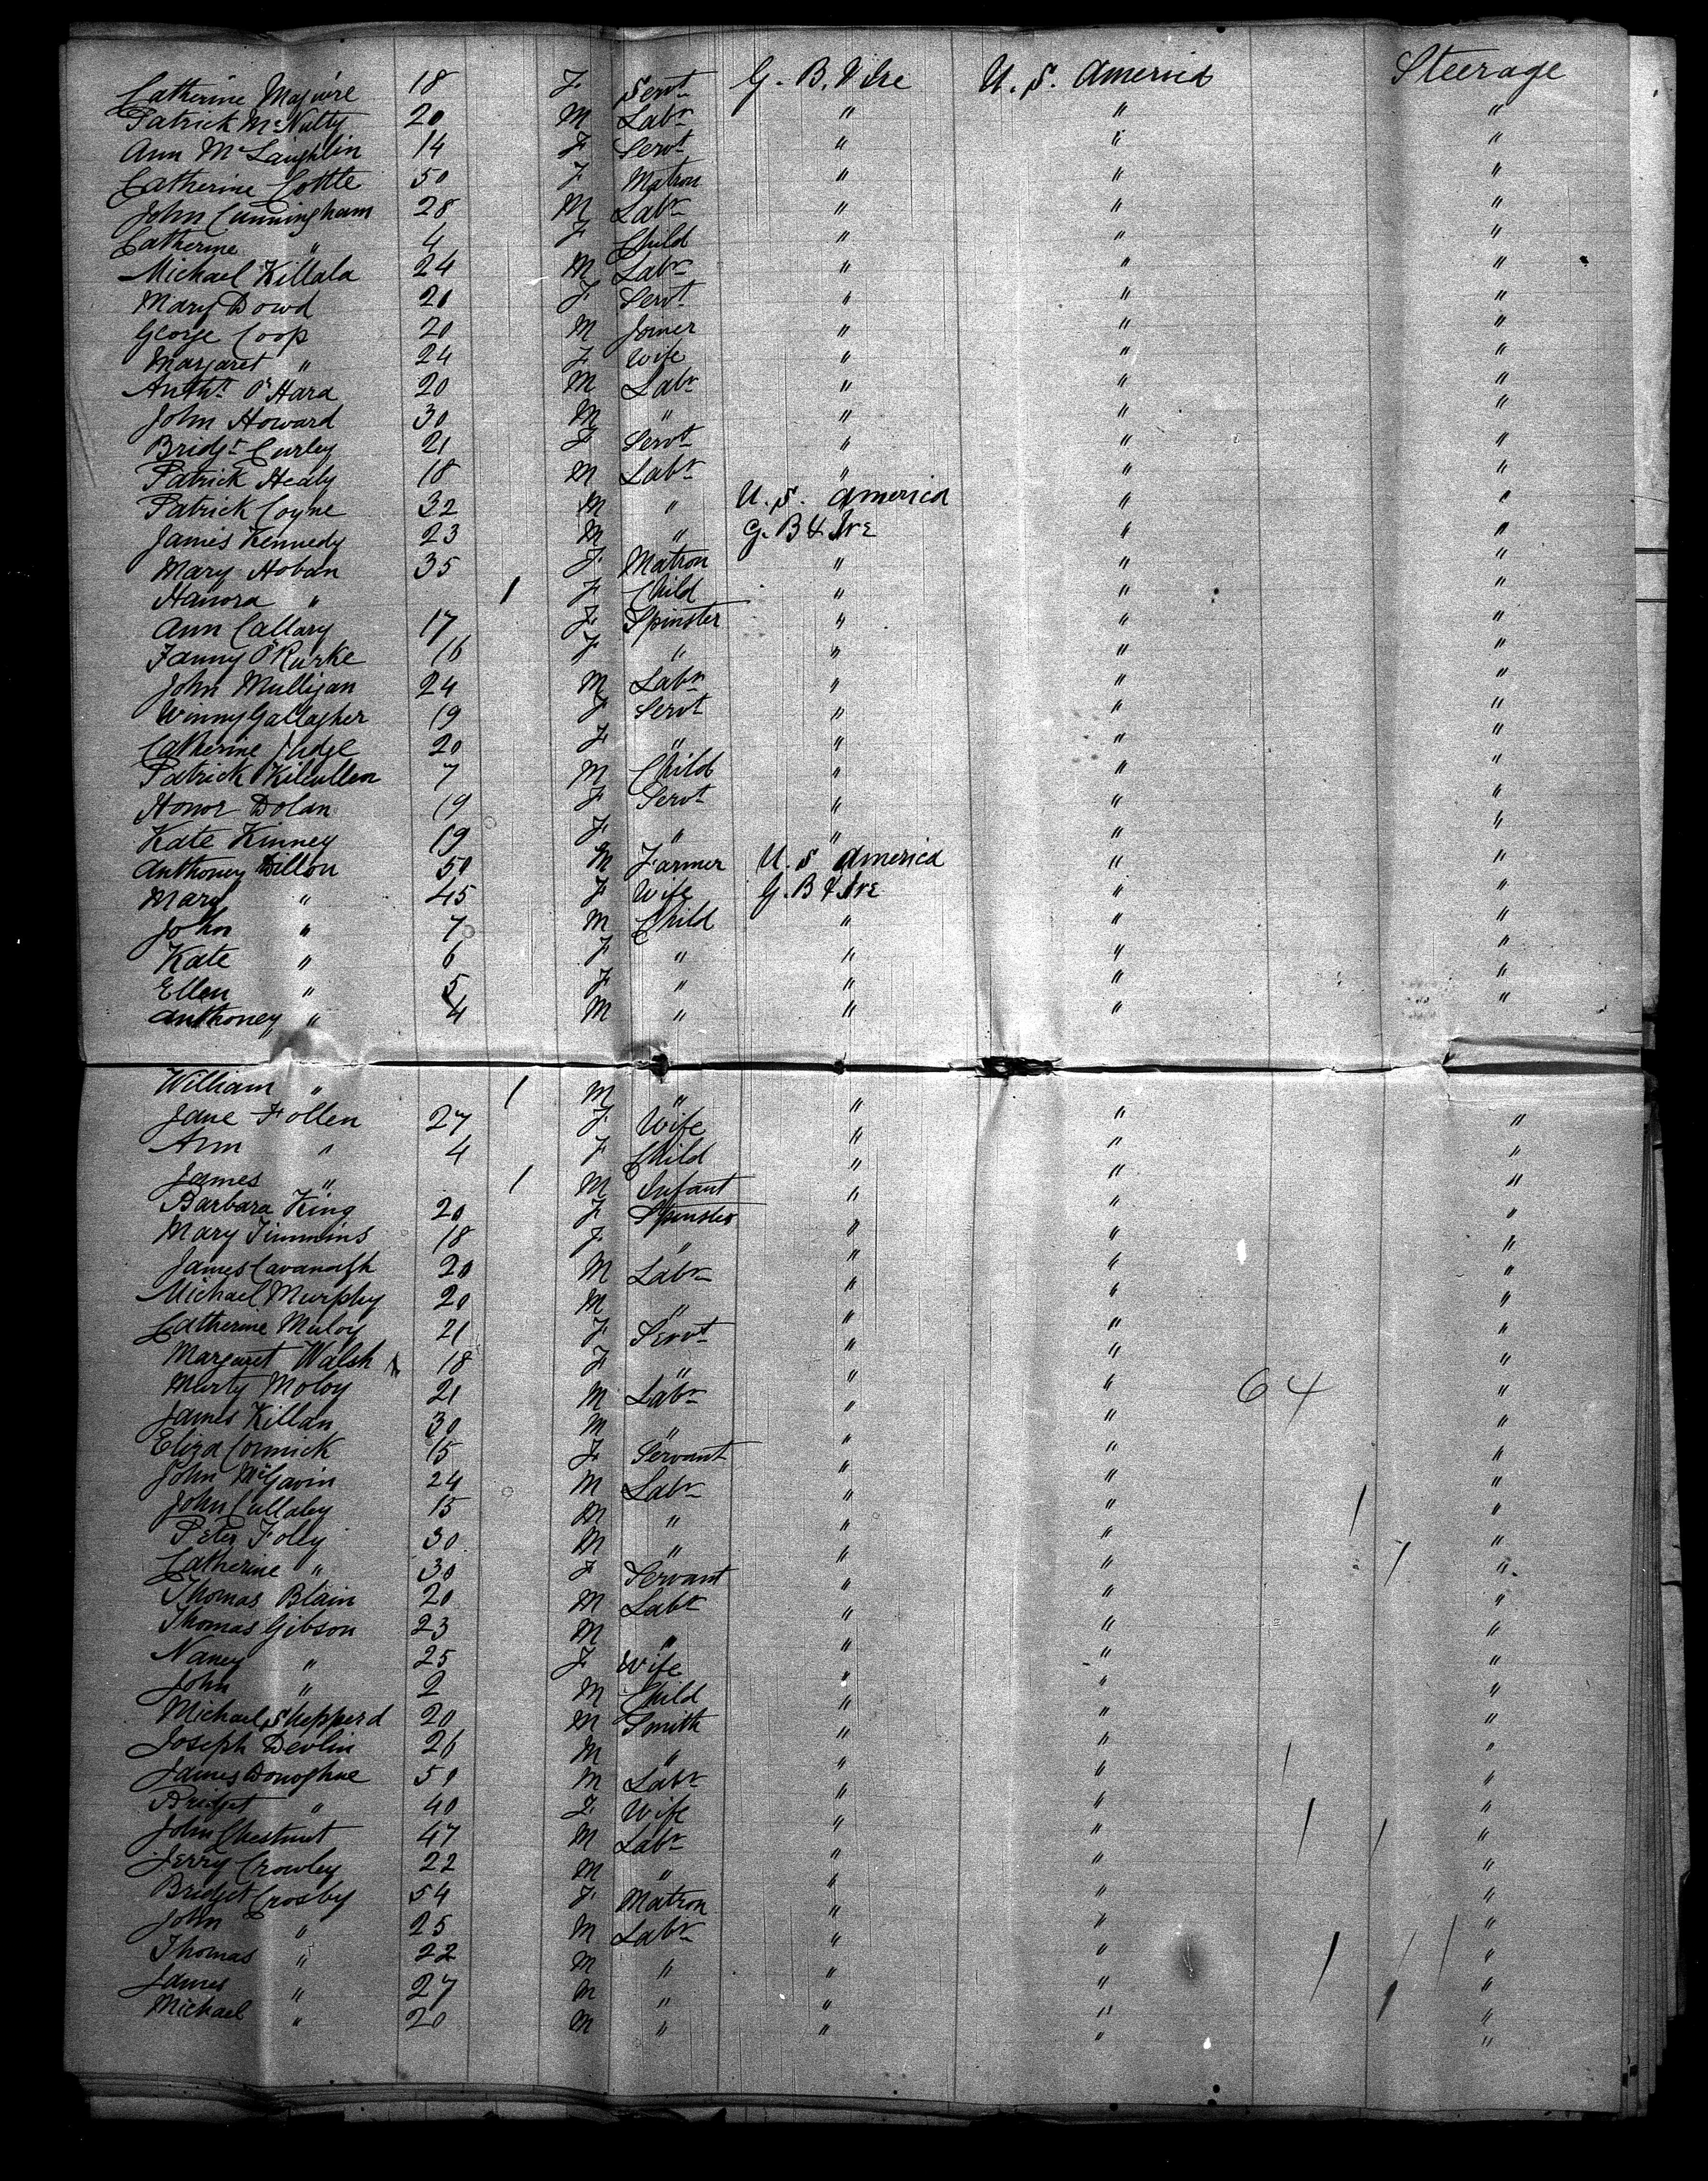 Catherine Maguire 18 F Servt G. B. & Ire U. S. America Steerage
Patrick McNulty 20 M Labr " " "
Ann McLaughlin 14 F Servt " " "
Catherine Cottle 50 F Matron " " "
John Cunningham 28 M Labr " " "
Catherine " 4 F Child " " "
Michael Killala 24 M Labr " " "
Mary Dowd 20 F Servt " " "
George Coop 20 M Joiner " " "
Margaret " 24 F Wife " " "
Anthy O'Hara 20 M Labr " " "
John Howard 30 M " " " "
Bridgt Curley 21 F Servt " " "
Patrick Healy 18 M Labr " " "
Patrick Coyne 32 M " U. S. America " "
James Kennedy 23 M " G. B & Ire " "
Mary Hoban 35 F Matron " " "
Hanora " 1 F Child " " "
Ann Callary 17 F Spinster " " "
Fanny O'Rurke 16 F " " " "
John Mulligan 24 M Labr " " "
Winny Gallagher 19 F Servt " " "
Catherine Judge 20 F " " " "
Patrick Kilcullen 7 M Child " " "
Honor Dolan 19 F Servt " " "
Kate Kinney 19 F " " " "
Anthoney Dillon 50 M Farmer U. S America " "
Mary " 45 F Wife G. B & Ire " "
John " 7 M Child " " "
Kate " 6 F " " " "
Ellen " 5 F " " " "
Anthoney " 4 M " " " "
William " 1 M " " " "
Jane Follen 27 F Wife " " "
Ann " 4 F Child " " "
James " 1 M Infant " " "
Barbara King 20 F Spinster " " "
Mary Timmins 18 F " " " "
James Cavanagh 20 M Labr " " "
Michael Murphy 20 M " " " "
Catherine Muloy 21 F Servt " " "
Margaret Walsh 18 F " " " "
Marty Moloy 21 M Labr " " 64 "
James Killan 30 M " " " "
Eliza Cormick 15 F Servant " " "
John McGavin 24 M Labr " " "
John Cullaby 15 M " " " "
Peter Foley 30 M " " " "
Catherine " 30 F Servant " " "
Thomas Blain 20 M Labr " " "
Thomas Gibson 23 M " " " "
Nancy " 25 F Wife " " "
John " 2 M Child " " "
Michael Shepperd 20 M Smith " " "
Joseph Devlin 26 M " " " "
James Donoghue 50 M Labr " " "
Bridget " 40 F Wife " " "
John Chestnut 47 M Labr " " "
Jerry Crowley 22 M " " " "
Bridget Crosby 54 F Matron " " "
John " 25 M Labr " " "
Thomas " 22 M " " " "
James " 27 M " " " "
Michael " 20 M " " " "